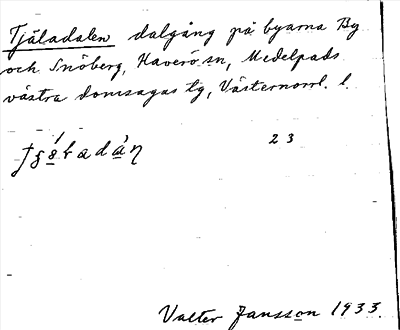 Tjäladalen dalgång på byarna By
och Snöberg, Haverö sn, Medelpads
västra domsagas tg, Västernorrl. l.
23
Valter Jansson 1933.